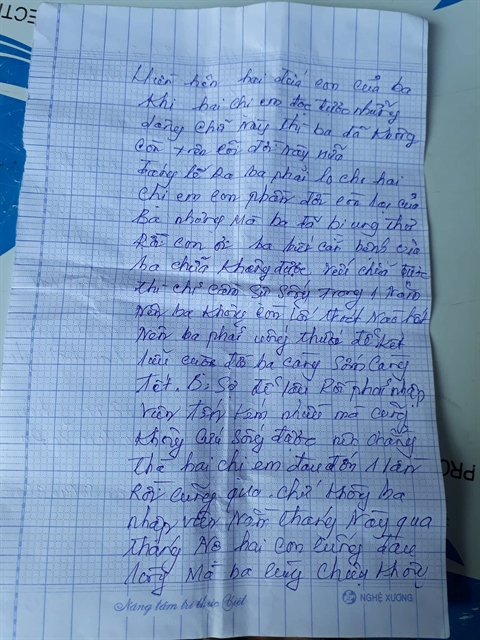 hai đứa con của ba
Khi hai chị em đọc được những
dòng chữ này thì ba đã không
còn trên cõi đời này nữa
Đáng lẽ Ra ba phải lo cho hai
chị em con phần đời còn lại của
Ba nhưng Mà ba đã bị ung thư
Rồi con ơi ba biết căn bệnh của
ba chữa không được, với chữa được
thì chỉ cầm sự sống trong 1 năm
Nên ba không còn lối thoát Nào hết
Nên ba phải uống thuốc để kết
liễu cuộc đời ba càng Sớm Càng
Tốt. Bị Sợ để lâu Rồi phải nhập
viện tốn kém nhiều mà cũng
không cứu sống được nên chẳng
Thà hai chị em đau đớn 1 lần
Rồi cũng qua. chứ không ba
nhập viện Năm tháng Này qua
tháng Nọ hai con cũng đau
lòng Mà ba cũng chịu không
Nâng tầm trí thức Việt
NGHỆ XƯƠNG
PRO